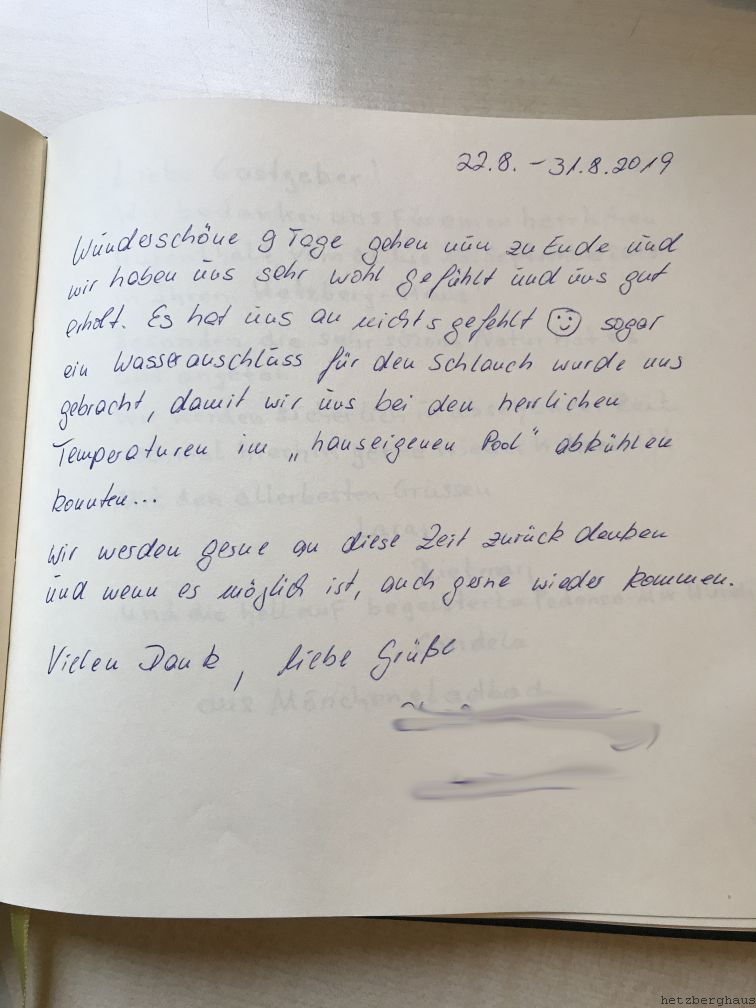 22.8. - 31.8.2019
Wunderschöne 9 Tage gehen nun zu Ende und
wir haben uns sehr wohl gefühlt und uns gut
erholt. Es hat uns an nichts gefehlt ☺ sogar
ein Wasseranschluss für den Schlauch wurde uns
gebracht, damit wir uns bei den herrlichen
Temperaturen im „hauseigenen Pool“ abkühlen
konnten...
Wir werden gerne an diese Zeit zurück denken
und wenn es möglich ist, auch gerne wieder kommen.
Vielen Dank, liebe Grüße
hetzberghaus